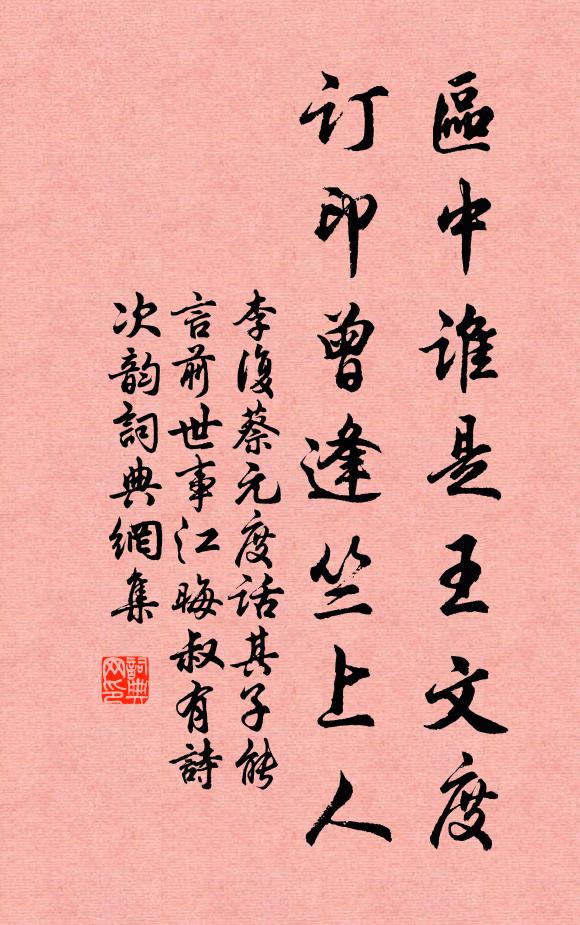 區中誰是王文度
订印曾逢竺上人
李復蔡元度話其子能
言前世事江晦叔有詩
次韵詞典網集
詞典网印